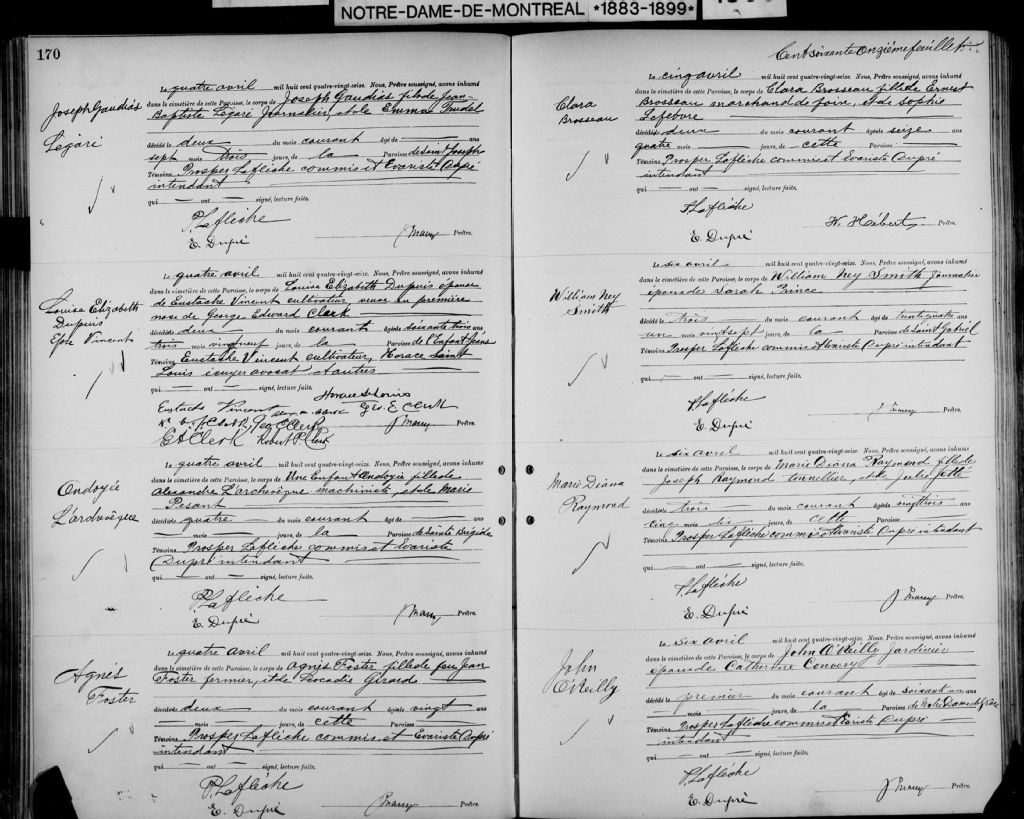 NOTRE-DAME-DE-MONTREAL *1883-1899*
170
Joseph Gaudias
Légaré
Le quatre avril mil huit cent quatre-vingt-seize. Nous, Prêtre soussigné, avons inhumé
dans le cimetière de cette Paroisse, le corps de Joseph Gaudias fils de Jean-
Baptiste Légaré Journalier, et de Emma Trudel
décédé le deux du mois courant âgé de ans
sept mois trois jours, de la Paroisse de Saint Joseph
Témoins Prosper Laflèche commis et Evariste Dupré
intendant
qui ont signé, lecture faite.
P. Laflèche
E. Dupré
Prêtre.
Louise Elizabeth
Dupuis
Epse Vincent
Le quatre avril mil huit cent quatre-vingt-seize. Nous, Prêtre soussigné, avons inhumé
dans le cimetière de cette Paroisse, le corps de Louise Elizabeth Dupuis epouse
de Eustache Vincent cultivateur, veuve en première
noce de George Edward Clerk
décédée le deux du mois courant âgée de soixante trois ans
trois mois vingt neuf jours, de la Paroisse de l'Enfant Jesus
Témoins Eustache Vincent cultivateur, Horace Saint
Louis écuyer avocat et autres
qui ont signé, lecture faite.
Horace St Louis
Eustache Vincent Geo. E Clerk
Robert P. Clerk
Prêtre.
Ondoyée
L'archevêque
Le quatre avril mil huit cent quatre-vingt-seize. Nous, Prêtre soussigné, avons inhumé
dans le cimetière de cette Paroisse, le corps de Une Enfant Ondoyée fille de
Alexandre L'archevêque machiniste, et de Marie
Pesant
décédée le quatre du mois courant âgé de ans
mois jours, de la Paroisse de Sainte Brigide
Témoins Prosper Laflèche commis et Evariste
Dupré intendant
qui ont signé, lecture faite.
P. Laflèche
E. Dupré
Prêtre.
Agnès
Foster
Le quatre avril mil huit cent quatre-vingt-seize. Nous, Prêtre soussigné, avons inhumé
dans le cimetière de cette Paroisse, le corps de Agnès Foster fille de feu Jean
Foster fermier, et de Léocadie Girard
décédée le deux du mois courant âgée de vingt ans
mois jours, de cette Paroisse
Témoins Prosper Laflèche commis et Evariste Dupré
intendant
qui ont signé, lecture faite.
P. Laflèche
E. Dupré
Prêtre.
Cent soixante onzième feuillet
Clara
Brosseau
Le cinq avril mil huit cent quatre-vingt-seize. Nous, Prêtre soussigné, avons inhumé
dans le cimetière de cette Paroisse, le corps de Clara Brosseau fille de Ernest
Brosseau marchand de foin, et de Sophie
Lefebvre
décédée le deux du mois courant âgée de seize ans
quatre mois jours, de cette Paroisse
Témoins Prosper Laflèche commis et Evariste Dupré
intendant
qui ont signé, lecture faite.
P. Laflèche
E. Dupré
H. Hébert Prêtre.
William Ney
Smith
Le six avril mil huit cent quatre-vingt-seize. Nous, Prêtre soussigné, avons inhumé
dans le cimetière de cette Paroisse, le corps de William Ney Smith Journalier
époux de Sarah Prince
décédé le trois du mois courant âgé de trente quatre ans
un mois vingt sept jours, de la Paroisse de Saint Gabriel
Témoins Prosper Laflèche commis et Evariste Dupré intendant
qui ont signé, lecture faite.
P. Laflèche
E. Dupré
Prêtre.
Marie Diana
Raymond
Le six avril mil huit cent quatre-vingt-seize. Nous, Prêtre soussigné, avons inhumé
dans le cimetière de cette Paroisse, le corps de Marie Diana Raymond fille de
Joseph Raymond tonnellier, et de Julie Jetté
décédée le trois du mois courant âgée de vingt trois ans
cinq mois dix jours, de cette Paroisse
Témoins Prosper Laflèche commis et Evariste Dupré intendant
qui ont signé, lecture faite.
P. Laflèche
E. Dupré
Prêtre.
John
O'Reilly
Le six avril mil huit cent quatre-vingt-seize. Nous, Prêtre soussigné, avons inhumé
dans le cimetière de cette Paroisse, le corps de John O'Reilly Jardinier
époux de Catherine Convery
décédé le premier du mois courant âgé de soixante un ans
mois jours, de la Paroisse de Notre Dame de Grâce
Témoins Prosper Laflèche commis et Evariste Dupré
intendant
qui ont signé, lecture faite.
P. Laflèche
E. Dupré
Prêtre.